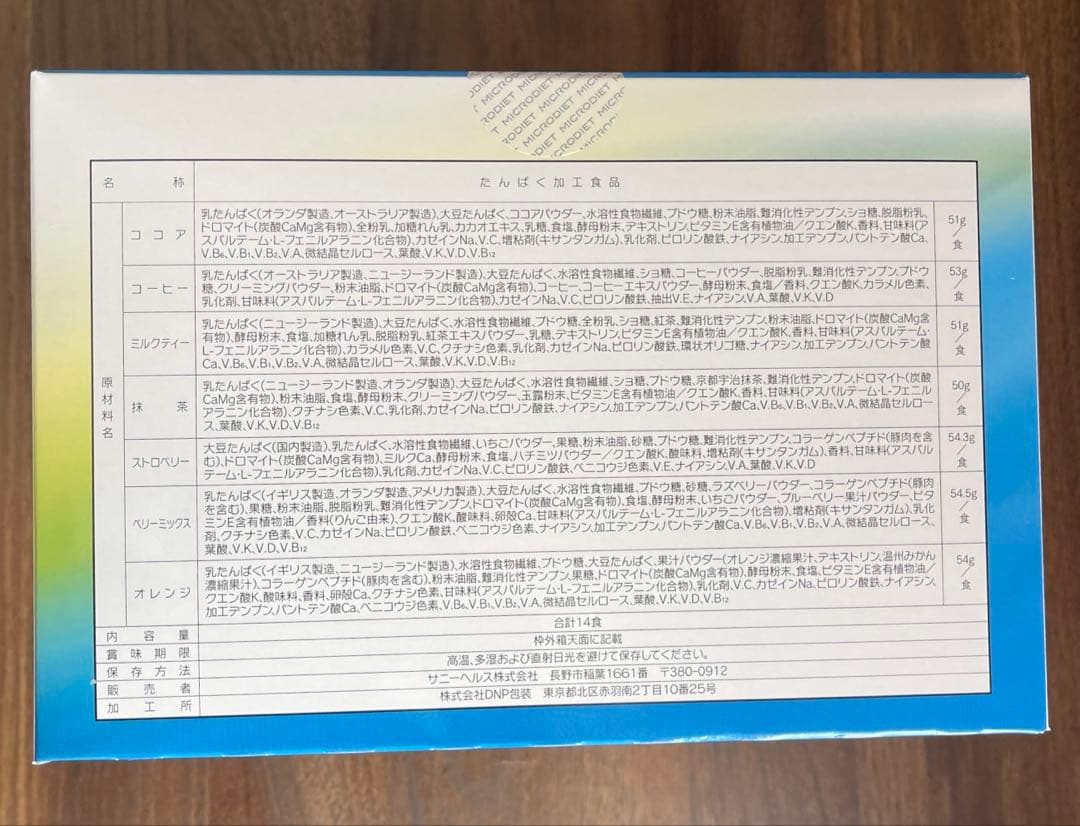 MICRODIET MICRODIET MICRODIET
名称
たんぱく加工食品
原材料名
ココア
乳たんぱく(オランダ製造、オーストラリア製造)、大豆たんぱく、ココアパウダー、水溶性食物繊維、ブドウ糖、粉末油脂、難消化性デンプン、ショ糖、脱脂粉乳、
ドロマイト(炭酸CaMg含有物)、全粉乳、加糖れん乳、カカオエキス、乳糖、食塩、酵母粉末、デキストリン、ビタミンE含有植物油／クエン酸K、香料、甘味料(ア
スパルテーム・L-フェニルアラニン化合物)、カゼインNa、V.C、増粘剤(キサンタンガム)、乳化剤、ピロリン酸鉄、ナイアシン、加工デンプン、パントテン酸Ca、
V.B₆、V.B₁、V.B₂、V.A、微結晶セルロース、葉酸、V.K、V.D、V.B₁₂
51g／食
コーヒー
乳たんぱく(オーストラリア製造、ニュージーランド製造)、大豆たんぱく、水溶性食物繊維、ショ糖、コーヒーパウダー、脱脂粉乳、難消化性デンプン、ブドウ
糖、クリーミングパウダー、粉末油脂、ドロマイト(炭酸CaMg含有物)、コーヒー、コーヒーエキスパウダー、酵母粉末、食塩／香料、クエン酸K、カラメル色素、
乳化剤、甘味料(アスパルテーム・L-フェニルアラニン化合物)、カゼインNa、V.C、ピロリン酸鉄、抽出V.E、ナイアシン、V.A、葉酸、V.K、V.D
53g／食
ミルクティー
乳たんぱく(ニュージーランド製造)、大豆たんぱく、水溶性食物繊維、ブドウ糖、全粉乳、ショ糖、紅茶、難消化性デンプン、粉末油脂、ドロマイト(炭酸CaMg含
有物)、酵母粉末、食塩、加糖れん乳、脱脂粉乳、紅茶エキスパウダー、乳糖、デキストリン、ビタミンE含有植物油／クエン酸K、香料、甘味料(アスパルテーム・
L-フェニルアラニン化合物)、カラメル色素、V.C、クチナシ色素、乳化剤、カゼインNa、ピロリン酸鉄、環状オリゴ糖、ナイアシン、加工デンプン、パントテン酸
Ca、V.B₆、V.B₁、V.B₂、V.A、微結晶セルロース、葉酸、V.K、V.D、V.B₁₂
51g／食
抹茶
乳たんぱく(ニュージーランド製造、オランダ製造)、大豆たんぱく、水溶性食物繊維、ショ糖、ブドウ糖、京都宇治抹茶、難消化性デンプン、ドロマイト(炭酸
CaMg含有物)、粉末油脂、食塩、酵母粉末、クリーミングパウダー、玉露粉末、ビタミンE含有植物油／クエン酸K、香料、甘味料(アスパルテーム・L-フェニル
アラニン化合物)、クチナシ色素、V.C、乳化剤、カゼインNa、ピロリン酸鉄、ナイアシン、加工デンプン、パントテン酸Ca、V.B₆、V.B₁、V.B₂、V.A、微結晶セルロー
ス、葉酸、V.K、V.D、V.B₁₂
50g／食
ストロベリー
大豆たんぱく(国内製造)、乳たんぱく、水溶性食物繊維、いちごパウダー、果糖、粉末油脂、砂糖、ブドウ糖、難消化性デンプン、コラーゲンペプチド(豚肉を含
む)、ドロマイト(炭酸CaMg含有物)、ミルクCa、酵母粉末、食塩、ハチミツパウダー／クエン酸K、酸味料、増粘剤(キサンタンガム)、香料、甘味料(アスパル
テーム・L-フェニルアラニン化合物)、乳化剤、カゼインNa、V.C、ピロリン酸鉄、ベニコウジ色素、V.E、ナイアシン、V.A、葉酸、V.K、V.D
54.3g／食
ベリーミックス
乳たんぱく(イギリス製造、オランダ製造、アメリカ製造)、大豆たんぱく、水溶性食物繊維、ブドウ糖、砂糖、ラズベリーパウダー、コラーゲンペプチド(豚肉
を含む)、果糖、粉末油脂、脱脂粉乳、難消化性デンプン、ドロマイト(炭酸CaMg含有物)、食塩、酵母粉末、いちごパウダー、ブルーベリー果汁パウダー、ビタ
ミンE含有植物油／香料(りんご由来)、クエン酸K、酸味料、卵殻Ca、甘味料(アスパルテーム・L-フェニルアラニン化合物)、増粘剤(キサンタンガム)、乳化
剤、クチナシ色素、V.C、カゼインNa、ピロリン酸鉄、ベニコウジ色素、ナイアシン、加工デンプン、パントテン酸Ca、V.B₆、V.B₁、V.B₂、V.A、微結晶セルロース、
葉酸、V.K、V.D、V.B₁₂
54.5g／食
オレンジ
乳たんぱく(イギリス製造、ニュージーランド製造)、水溶性食物繊維、ブドウ糖、大豆たんぱく、果汁パウダー(オレンジ濃縮果汁、デキストリン、温州みかん
濃縮果汁)、コラーゲンペプチド(豚肉を含む)、粉末油脂、難消化性デンプン、果糖、ドロマイト(炭酸CaMg含有物)、酵母粉末、食塩、ビタミンE含有植物油／
クエン酸K、酸味料、香料、卵殻Ca、クチナシ色素、甘味料(アスパルテーム・L-フェニルアラニン化合物)、乳化剤、V.C、カゼインNa、ピロリン酸鉄、ナイアシン、
加工デンプン、パントテン酸Ca、ベニコウジ色素、V.B₆、V.B₁、V.B₂、V.A、微結晶セルロース、葉酸、V.K、V.D、V.B₁₂
54g／食
内容量
合計14食
賞味期限
枠外箱天面に記載
保存方法
高温、多湿および直射日光を避けて保存してください。
販売者
サニーヘルス株式会社 長野市稲葉1661番 〒380-0912
加工所
株式会社DNP包装 東京都北区赤羽南2丁目10番25号